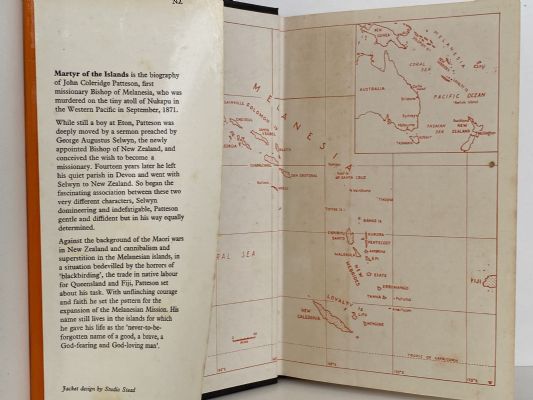 NZ
Martyr of the Islands is the biography
of John Coleridge Patteson, first
missionary Bishop of Melanesia, who was
murdered on the tiny atoll of Nukapu in
the Western Pacific in September, 1871.
While still a boy at Eton, Patteson was
deeply moved by a sermon preached by
George Augustus Selwyn, the newly
appointed Bishop of New Zealand, and
conceived the wish to become a
missionary. Fourteen years later he left
his quiet parish in Devon and went with
Selwyn to New Zealand. So began the
fascinating association between these two
very different characters, Selwyn
domineering and indefatigable, Patteson
gentle and diffident but in his way equally
determined.
Against the background of the Maori wars
in New Zealand and cannibalism and
superstition in the Melanesian islands, in
a situation bedevilled by the horrors of
'blackbirding', the trade in native labour
for Queensland and Fiji, Patteson set
about his task. With unflinching courage
and faith he set the pattern for the
expansion of the Melanesian Mission. His
name still lives in the islands for which
he gave his life as the 'never-to-be-
forgotten name of a good, a brave, a
God-fearing and God-loving man'.
Jacket design by Studio Stead
MELANESIA
SOLOMON IS
SANTA CRUZ
BANKS IS
AURORA
PENTECOST
AMBRYM
MALEKULA
EPI
NEW HEBRIDES
EFATE
ERROMANGO
TANNA
FUTUNA
LOYALTY IS
NEW CALEDONIA
FIJI
CORAL SEA
TROPIC OF CAPRICORN
NEW GUINEA
MELANESIA
CORAL SEA
AUSTRALIA
PACIFIC OCEAN
Brisbane
Sydney
Norfolk Island
TASMAN SEA
NEW ZEALAND
Auckland
TASMANIA